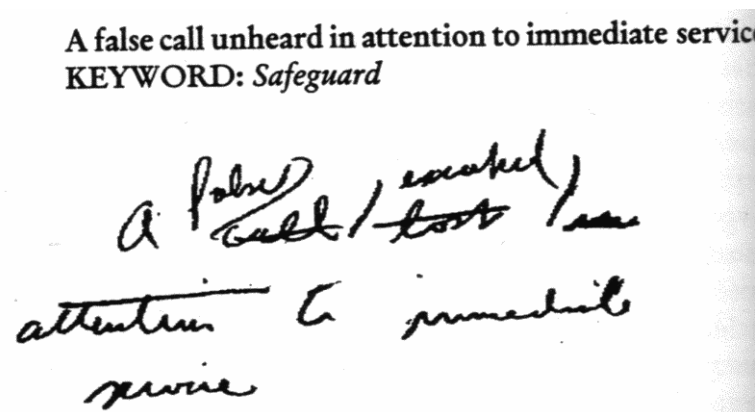 A false call unheard in attention to immediate servic
KEYWORD: Safeguard
a false call / lost / in
attention to immediate
service